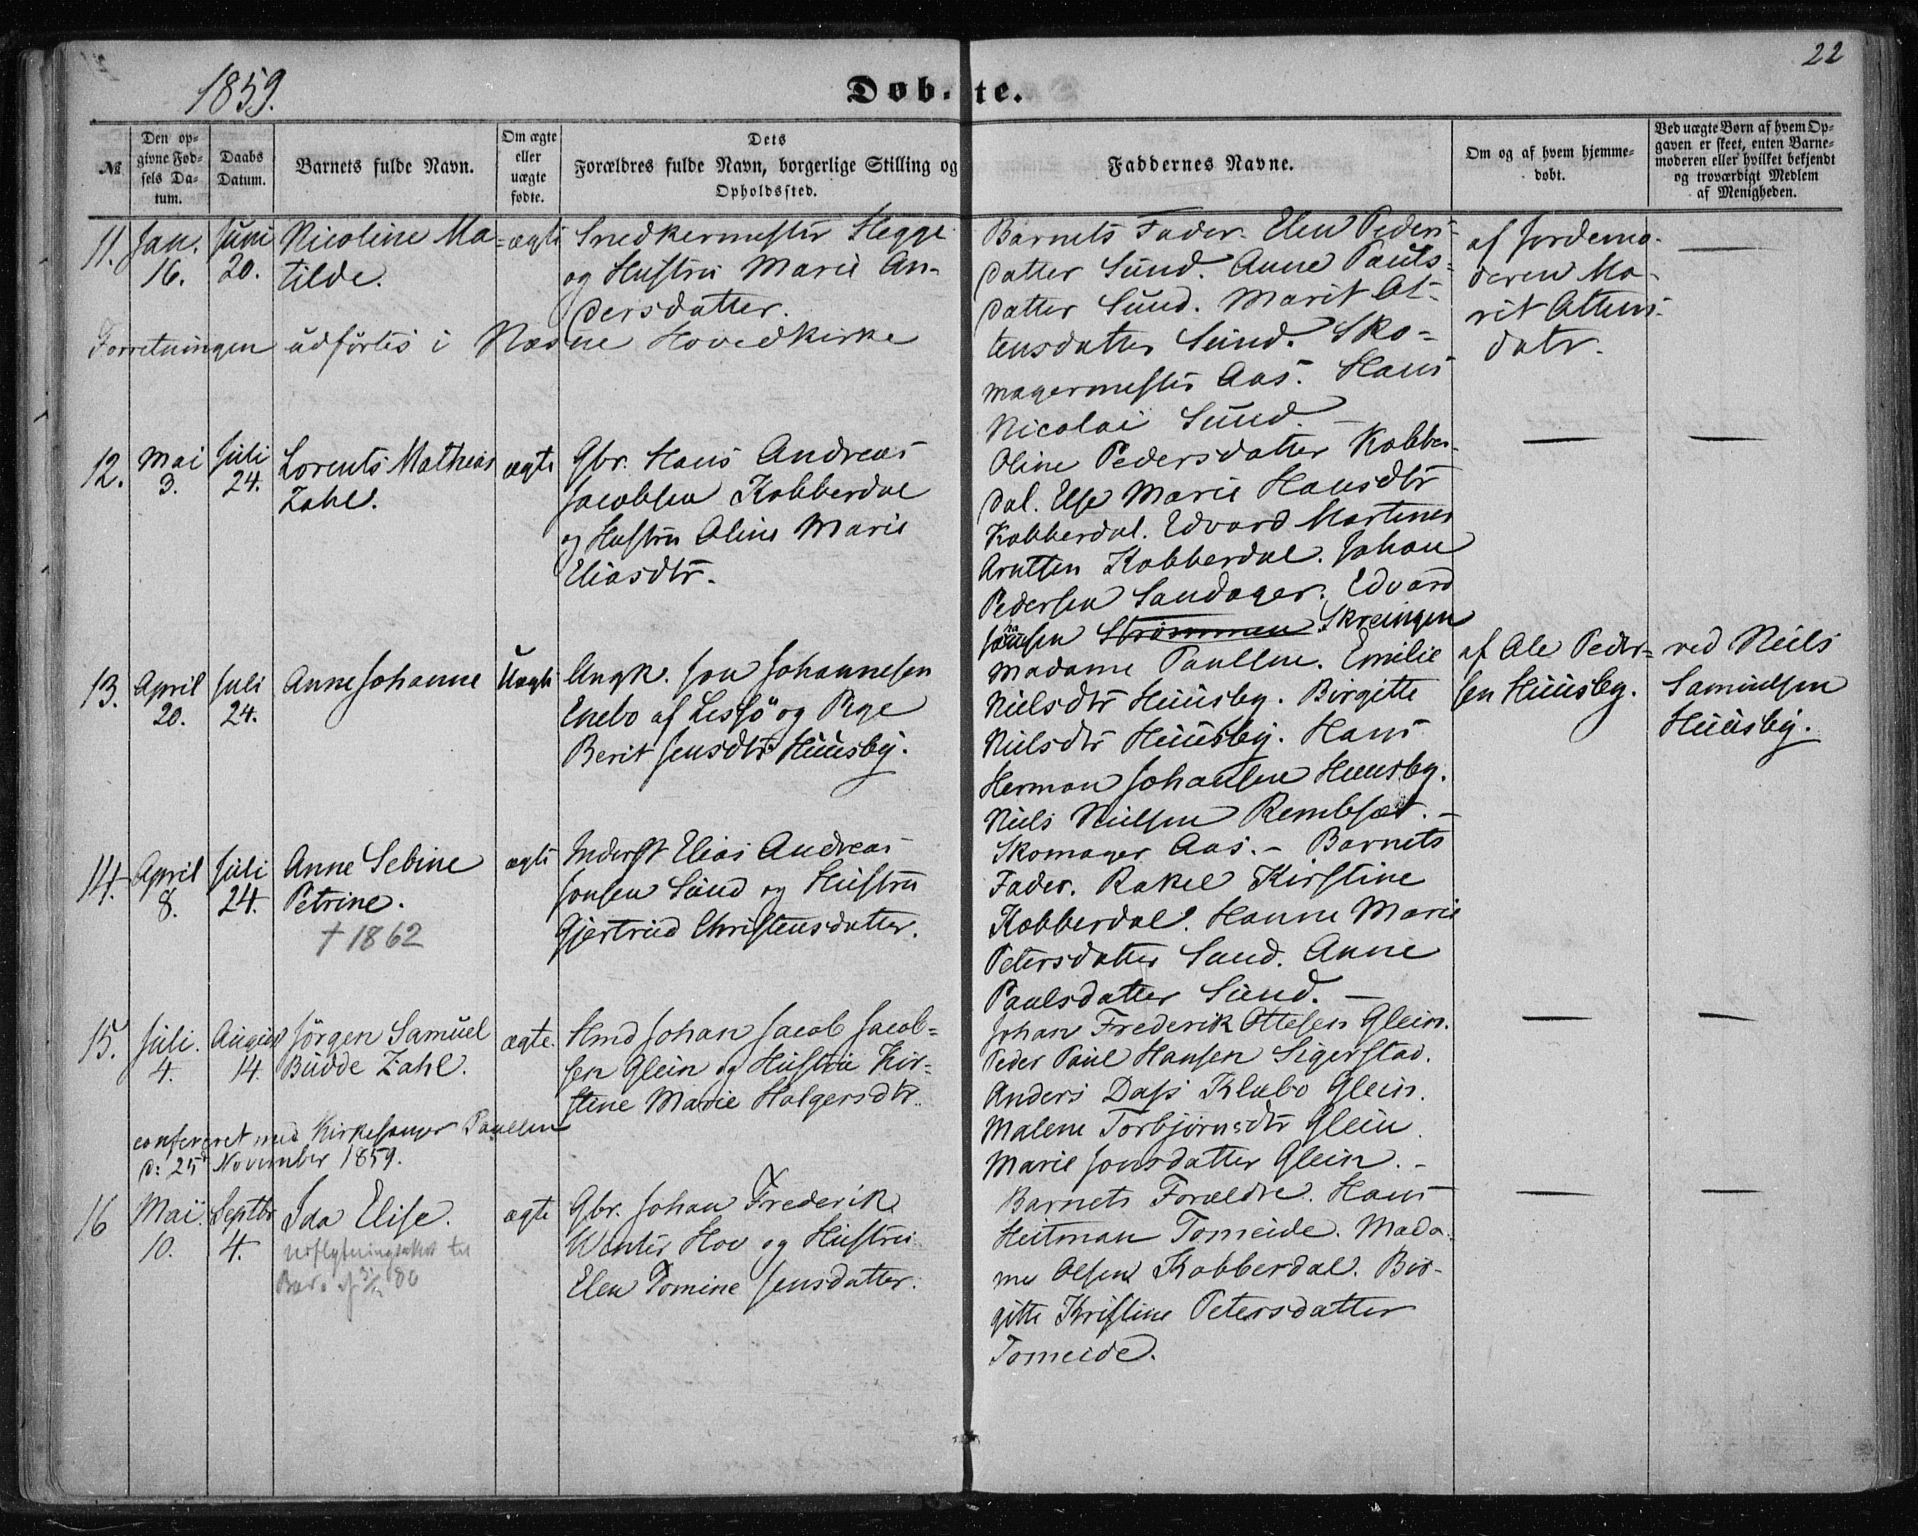 22
1859.
Døbte.
№
Den opgivne Fødsels Datum.
Daabs Datum.
Barnets fulde Navn.
Om ægte eller uægte fødte.
Dets Forældres fulde Navn, borgerlige Stilling og Opholdssted.
Faddernes Navne.
Om og af hvem hjemmedøbt.
Ved uægte Børn af hvem Opgaven er skeet, enten Barnemoderen eller hvilket bekjendt og troværdigt Medlem af Menigheden.
11. Jan. 16. Juni 20.
Nicoline Ma-
tilde.
ægte
Snedkermester Hegge
og Hustru Marie An-
dersdatter.
Forretningen udførtes i Næsne Hovedkirke
Barnets Fader. Elen Peders-
datter Sund. Anne Pauls-
datter Sund. Marit At-
tensdatter Sund. Sko-
magermester Aas. Hans
Nicolai Sund. —
af Jordemo-
deren Ma-
rit Attens-
datr.
—
12. Mai 3. Juli 24.
Lorents Mathias
Zahl.
ægte
Gbr. Hans Andreas
Jacobsen Kobberdal
og Hustru Oline Marie
Eliasdtr.
Oline Pedersdatter Kobber-
dal. Else Marie Hansdtr
Kobberdal. Edvard Martinus
Arntsen Kobberdal. Johan
Pedersen Sandager. Edvard
Jonsen Strømmen Skreingen
—
—
13. April 20. Juli 24.
Anne Johanne
Uægte
Ungk. Jon Johannesen
Enebo af Lessø og Pige
Berit Jensdtr Huusby.
Madame Paulsen. Emilie
Nielsdtr Huusby. Birgitte
Nielsdtr Huusby. Hans
Herman Johansen Huusby.
Niels Nielsen Rembsæt. —
af Ole Peder-
sen Huusby.
ved Niels
Samuelsen
Huusby.
14. April 8. Juli 24.
Anne Sebine
Petrine.
† 1862
ægte
Inderst Elias Andreas
Jonsen Sund og Hustru
Gjertrud Christensdatter.
Skomager Aas. — Barnets
Fader. Rakel Kirstine
Kobberdal. Hanne Marie
Petersdatter Sund. Anne
Paulsdatter Sund. —
15. Juli. 4. August 14.
Jørgen Samuel
Budde Zahl.
ægte.
Hmd Johan Jacob Jacob-
sen Glein og Hustru Kir-
stine Marie Holgersdtr.
confereret med Kirkesanger Paulsen
d: 25 November 1859.
Johan Frederik Ottesen Glein.
Peder Paul Hansen Sigerstad.
Anders Dass Klæbo Glein.
Malene Torbjørnsdtr Glein.
Marie Jonsdatter Glein. —
—
—
16 Mai. 10. Septbr 4.
Ida Elise.
Udflytningsattest til
80
ægte
Gbr. Johan Frederik
Winter Hov og Hustru
Elen Tomine Jensdatter.
Barnets Forældre. Hans
Heitman Tomeide. Mada-
me Olsen Kobberdal. Bir-
gitte Kristine Petersdatter
Tomeide.
—
—